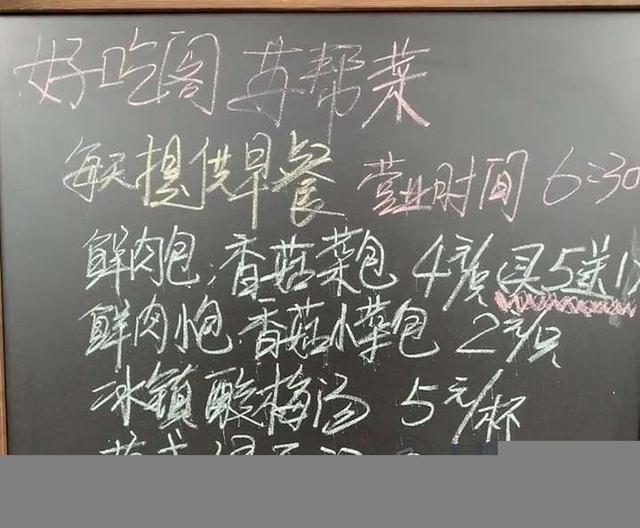 好吃阁 苏帮菜
每天提供早餐 营业时间 6:30
鲜肉包.香菇菜包 4元/只 买5送1
鲜肉小包.香菇小菜包 2元/只
冰镇酸梅汤 5元/杯
苏式绿豆汤